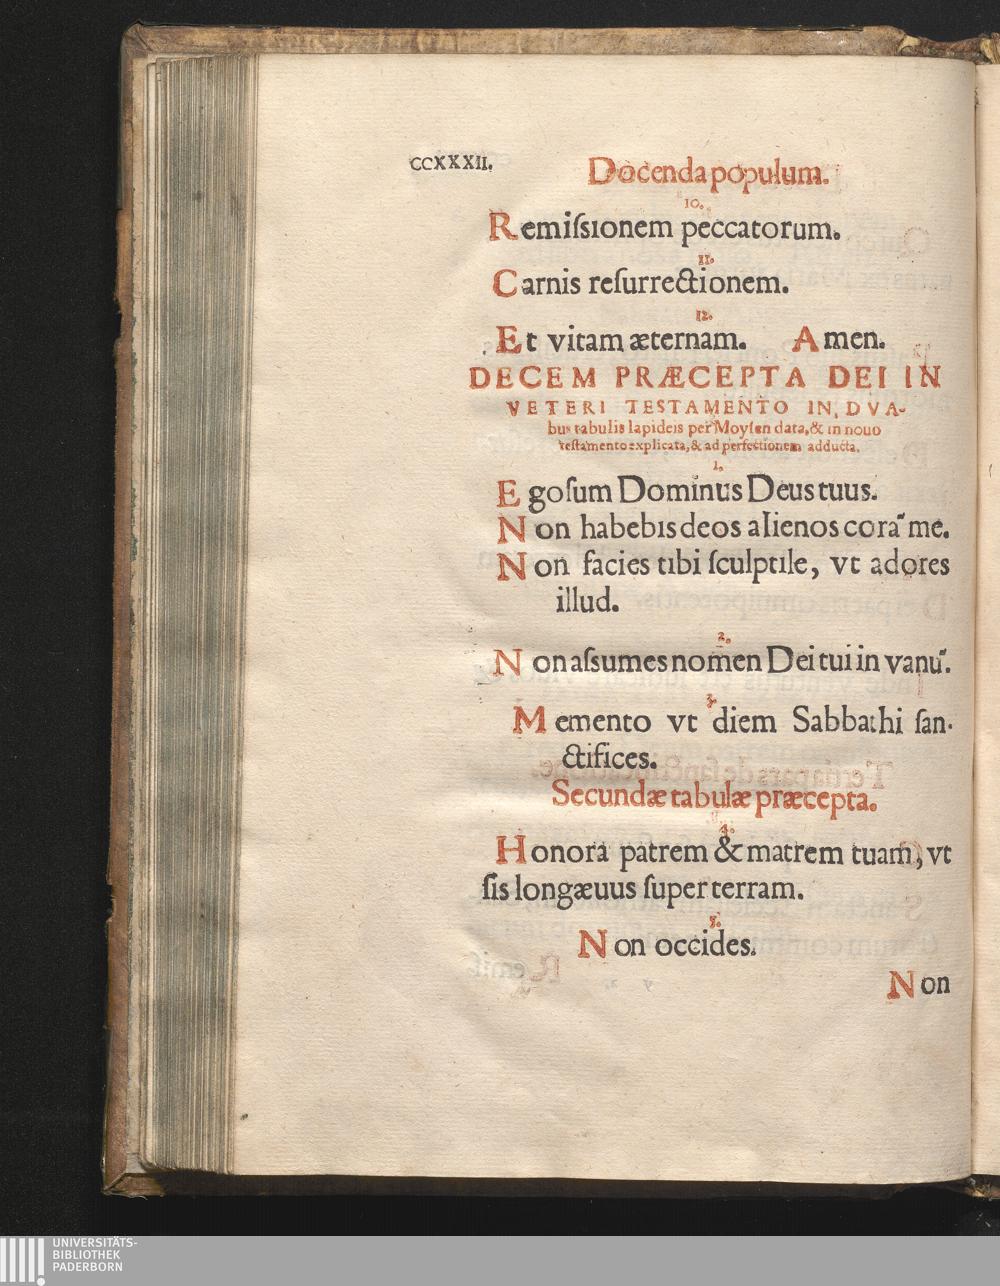 CCXXXII.
Docenda populum.
10.
Remiſsionem peccatorum.
11.
Carnis reſurrectionem.
12.
Et vitam æternam. Amen.
DECEM PRÆCEPTA DEI IN
VETERI TESTAMENTO IN, DVA-
bus tabulis lapideis per Moyſen data, & in nouo
teſtamento explicata, & ad perfectionem adducta.
1.
Ego ſum Dominus Deus tuus.
Non habebis deos alienos corā me.
Non facies tibi ſculptile, vt adores
illud.
2.
Non aſsumes nomen Dei tui in vanū.
3.
Memento vt diem Sabbathi ſan-
ctifices.
Secundæ tabulæ præcepta.
4.
Honora patrem & matrem tuam, vt
ſis longæuus ſuper terram.
5.
Non occides.
Non
UNIVERSITÄTS-
BIBLIOTHEK
PADERBORN